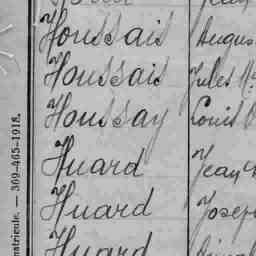 Houssais Augus
Houssais Jules
Houssay Louis
Huard Jean
Huard Josep
Huard
matricule. — 369-465-1918.